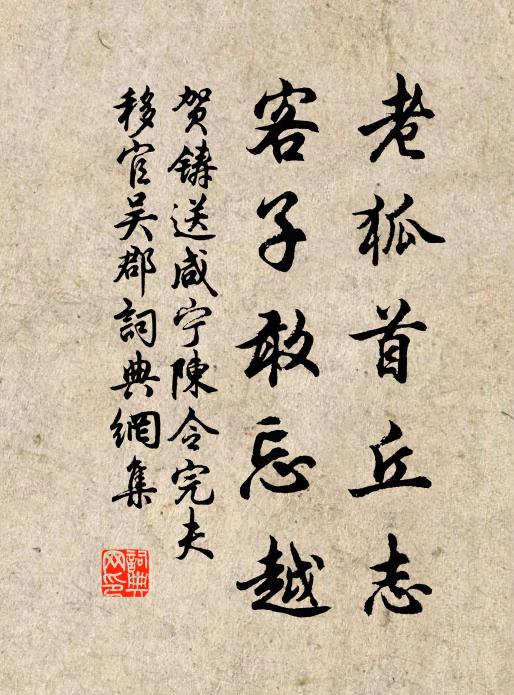 老狐首丘志
客子敢忘越
贺铸送咸宁陳令完夫
移官吴郡詞典網集
詞典網印